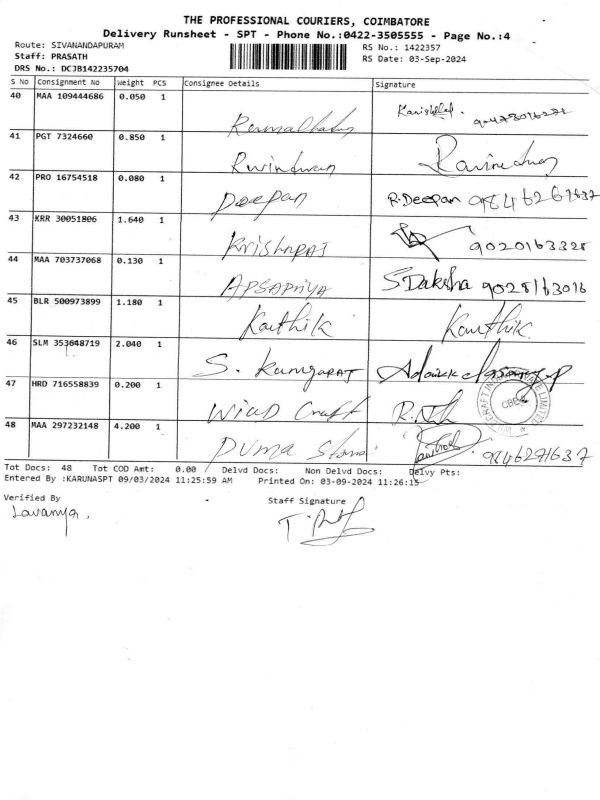 THE PROFESSIONAL COURIERS, COIMBATORE
Delivery Runsheet - SPT - Phone No.:0422-3505555 - Page No.:4
Route: SIVANANDAPURAM
RS No.: 1422357
Staff: PRASATH
RS Date: 03-Sep-2024
DRS No.: DCJB142235704
S No Consignment No Weight PCS Consignee Details Signature
40 MAA 109444686 0.050 1
41 PGT 7324660 0.850 1
42 PRO 16754518 0.080 1 Deepan R.Deepan
43 KRR 30051806 1.640 1 Krishnraj 9020163328
44 MAA 703737068 0.130 1 S Daksha 9028163016
45 BLR 500973899 1.180 1 Karthik Karthik
46 SLM 353648719 2.040 1 S.
47 HRD 716558839 0.200 1 Craft
48 MAA 297232148 4.200 1 9846291637
Tot Docs: 48 Tot COD Amt: 0.00 Delvd Docs: Non Delvd Docs: Delvy Pts:
Entered By :KARUNASPT 09/03/2024 11:25:59 AM Printed On: 03-09-2024 11:26:15
Verified By Staff Signature
Lavanya,